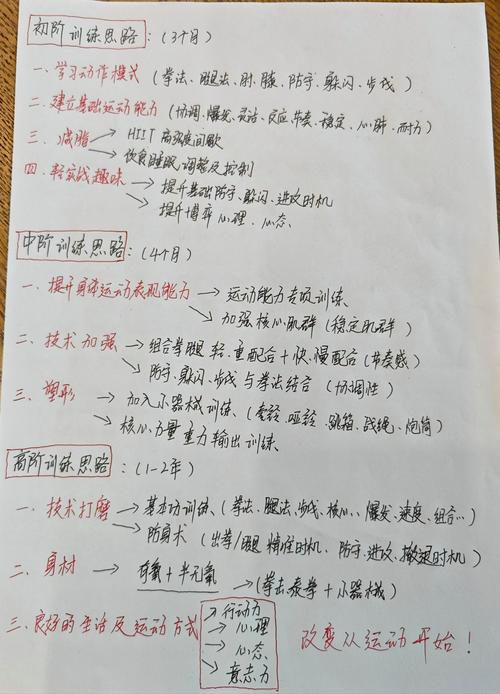 初阶训练思路：(3个月)
一、学习动作模式 (拳法、腿法、肘、膝、防守、躲闪、步伐)
二、建立基础运动能力 (协调、爆发、灵活、反应、节奏、稳定、心肺、耐力)
三、减脂 → HIIT 高强度间歇
→ 饮食睡眠调整及控制
四、轻实战趣味 → 提升基础防守、躲闪、进攻时机
→ 提升博弈心理、心态、
中阶训练思路：(4个月)
一、提升身体运动表现能力 → 运动能力专项训练
→ 加强核心肌群 (稳定肌群)
二、技术加强 → 组合拳腿 轻、重配合 + 快、慢配合 (节奏感)
→ 防守、躲闪、步伐 与 拳法结合 (协调性)
三、塑形 → 加入小器械训练、(壶铃、哑铃、跳箱、战绳、炮筒)
→ 核心力量 重力输出训练、
高阶训练思路：(1-2年)
一、技术打磨 → 基本功训练、(拳法、腿法、步伐、核心、爆发、速度、组合...)
→ 防身术 (出拳/腿 精准时机、防守、进攻、撤退时机)
二、身材 → 有氧 + 半无氧 → (拳击泰拳 + 小器械)
三、良好的生活及运动方式 → 行动力
→ 心理
→ 心态、
→ 意志力
改变从运动开始！